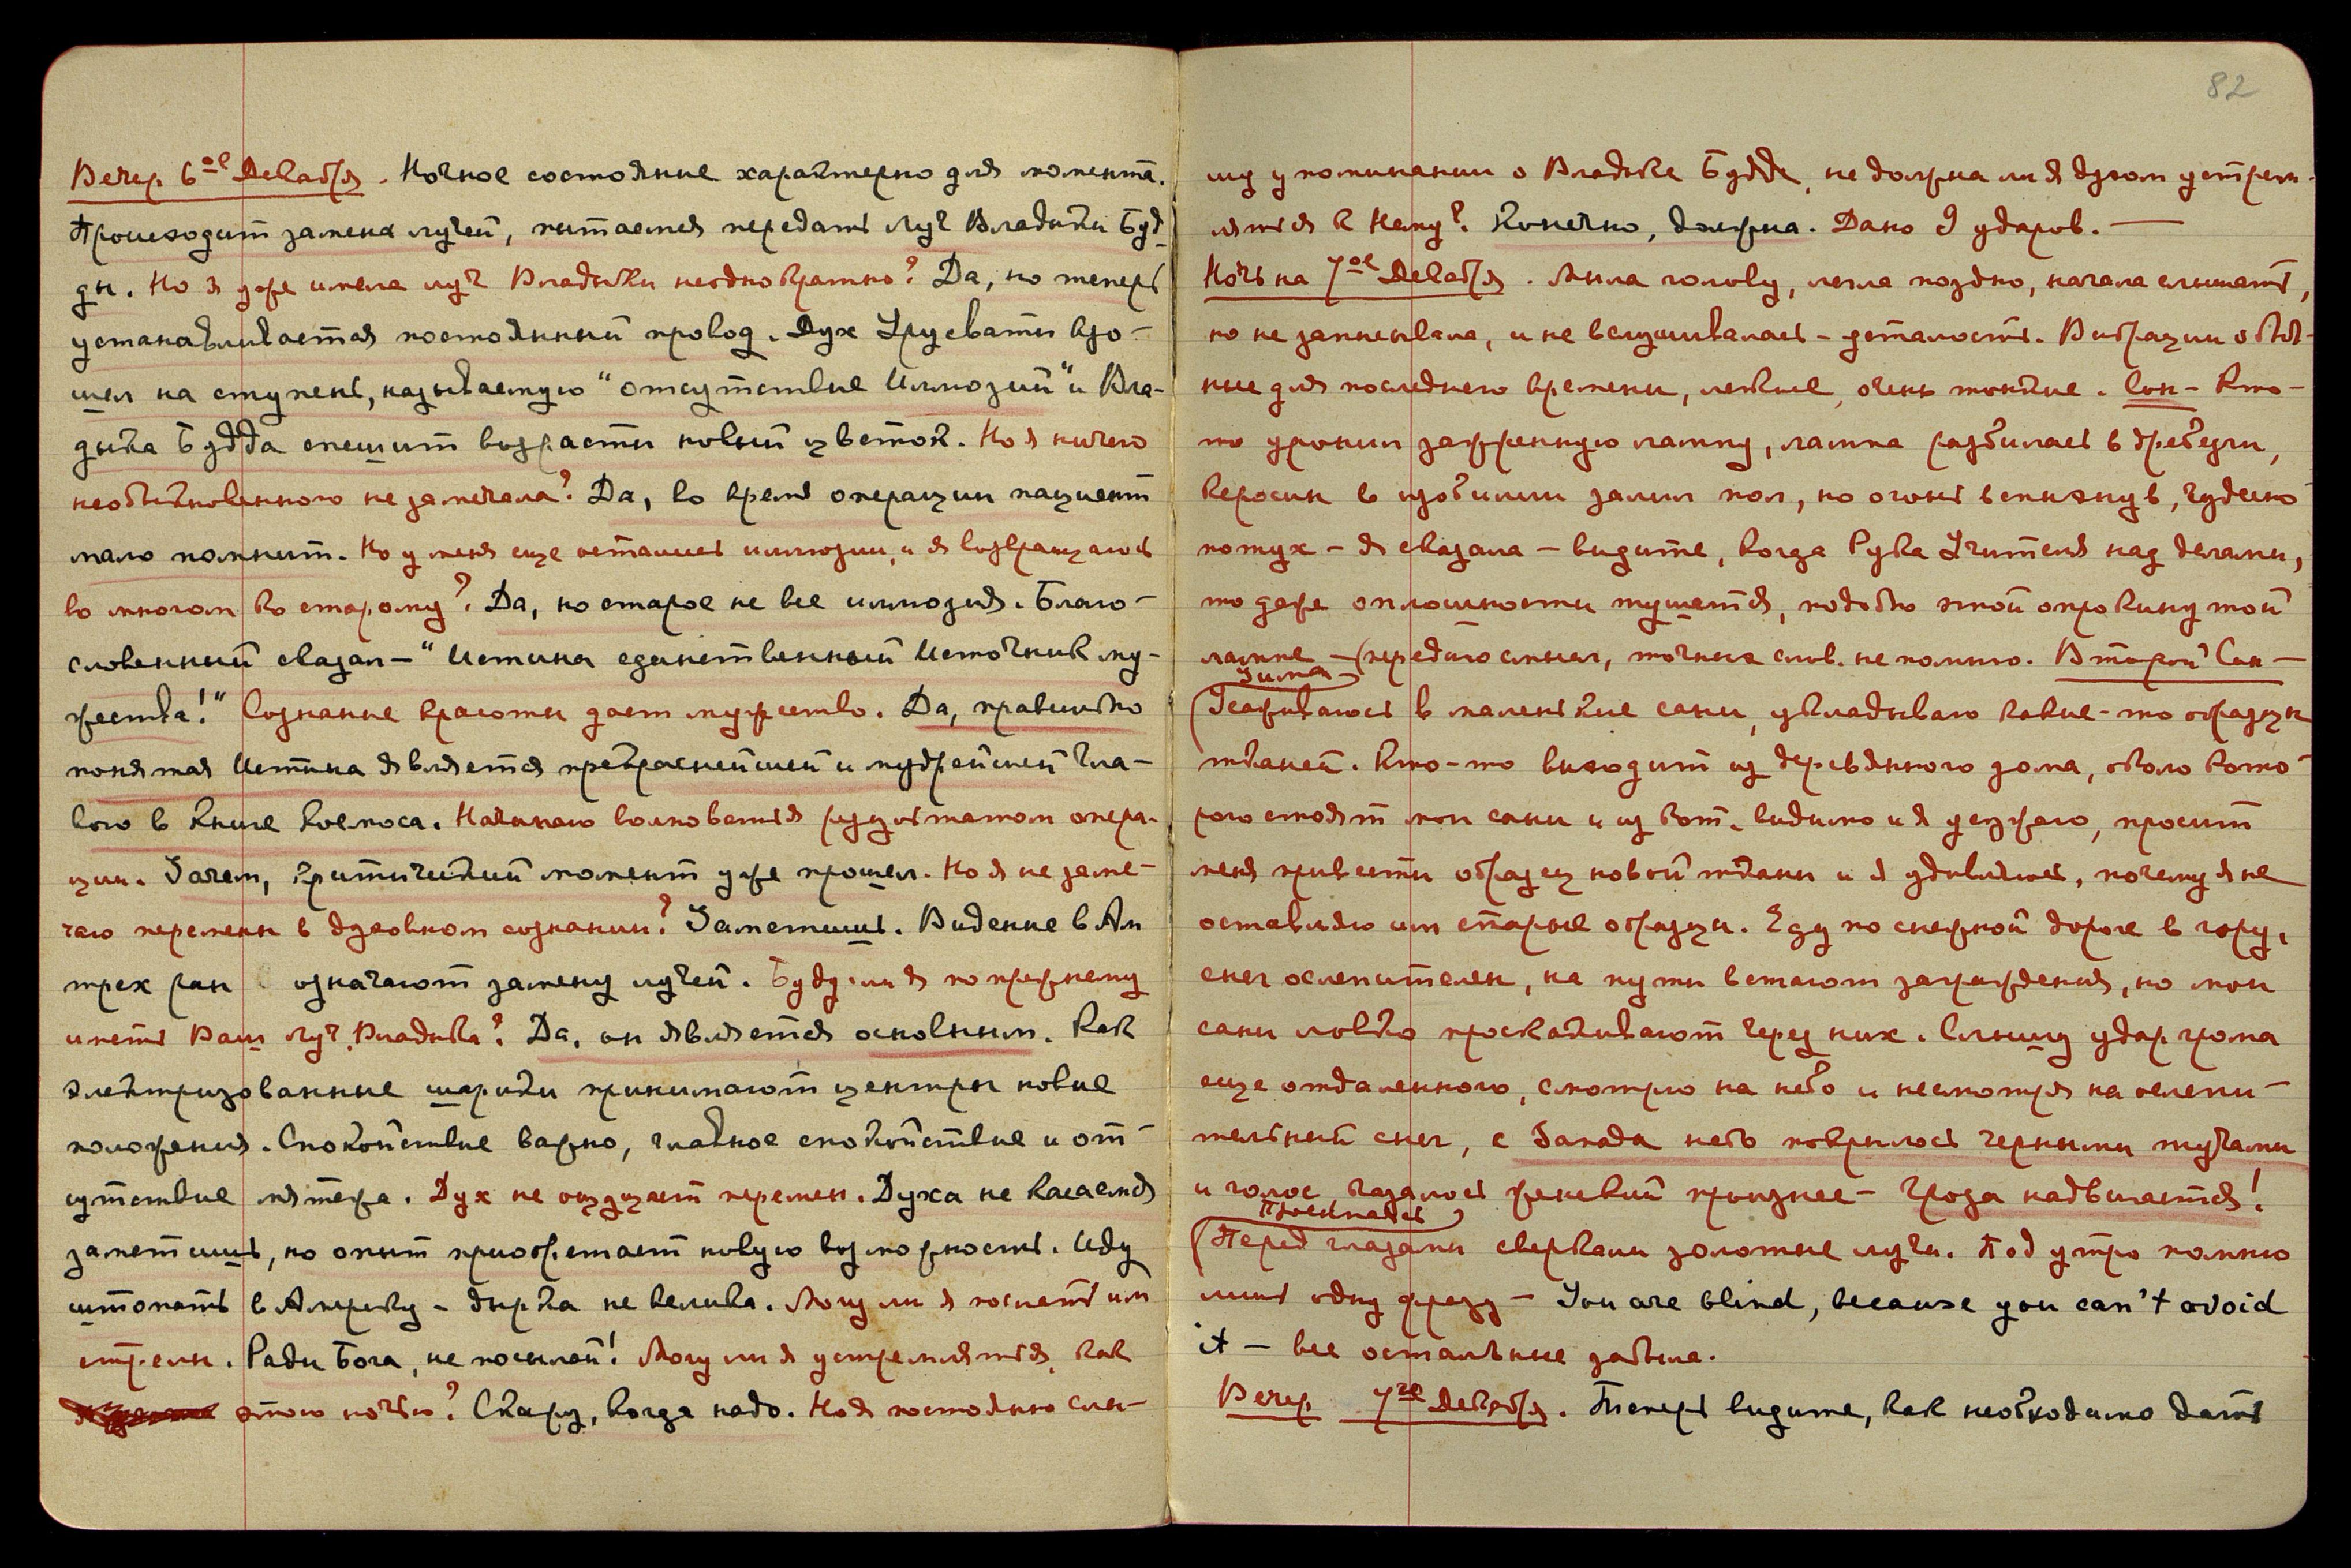 Вечер 6ое Декабря. Ночное состояние характерно для момента.
Происходит замена лучей, пытаемся передать луч Владыки Буд-
ды. Но я уже имела луч Владыки неоднократно? Да, но теперь
устанавливается постоянный провод. Дух Урусвати взо-
шел на ступень, называемую "отсутствие Иллюзий" и Вла-
дыка Будда спешит возрасти новый цветок. Но я ничего
необыкновенного не замечала? Да, во время операции пациент
мало помнит. Но у меня еще остались иллюзии, и я возвращаюсь
во многом ко старому? Да, но старое не все иллюзия. Благо-
словенный сказал – "Истина единственный Источник му-
жества!" Сознание красоты дает мужество. Да, правильно
понятая Истина является прекраснейшей и мудрейшей гла-
вою в Книге Космоса. Начинаю волноваться результатом опера-
ции. Зачем, критический момент уже прошел. Но я не заме-
чаю перемены в духовном сознании? Заметишь. Видение в Ам
трех ран означают замену лучей. Буду ли я по прежнему
иметь Ваш луч, Владыка? Да, он является основным. Как
электризованные шарики принимают центры новые
положения. Спокойствие важно, главное спокойствие и от-
сутствие мятежа. Дух не ощущает перемен. Духа не касаемся
заметишь, но опыт приобретает новую возможность. Иду
штопать в Америку – дырка не велика. Могу ли я послать им
стрелы. Ради Бога, не посылай! Могу ли я устремляться, как
этою ночью? Скажу, когда надо. Но я постоянно слы-
82
шу упоминании о Владыке Будде, не должна ли я духом устрем-
ляться к Нему? Конечно, должна. Дано 9 ударов. —
Ночь на 7ое Декабря. Мыла голову, легла поздно, начала слышать,
но не записывала, и не вслушивалась – усталость. Вибрации обыч-
ные для последнего времени, легкие, очень тонкие. Сон – Кто-
то уронил зажженную лампу, лампа разбилась в дребезги,
керосин в изобилии залил пол, но огонь вспыхнув, чудесно
потух – я сказала – видите, когда Рука Учителя над делами,
то даже оплошности тушатся, подобно этой опрокинутой
лампе – (передаю смысл, точных слов не помню. Второй Сон –
Зима
(Усаживаюсь в маленькие сани, укладываю какие-то образцы
тканей. Кто-то выходит из деревянного дома, около кото-
рого стоят мои сани и из кот. видимо и я уезжаю, просит
меня привести образец новой ткани и я удивляюсь, почему я не
оставляю им старые образцы. Еду по снежной дороге в гору,
снег ослепителен, на пути встают заграждения, но мои
сани ловко проскакивают через них. Слышу удар грома
еще отдаленного, смотрю на небо и несмотря на ослепи-
тельный снег, с Запада небо покрылось черными тучами
и голос, казалось женский произнес – Гроза надвигается!
Просыпаясь
(Перед глазами сверкали золотые лучи. Под утро помню
лишь одну фразу – You are blind, because you can't avoid
it – все остальные забыла.
Вечер 7го Декабря. Теперь видите, как необходимо дать